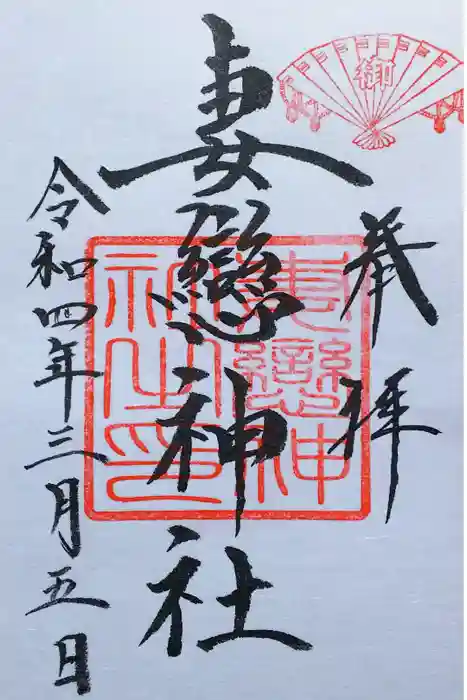 奉拝
妻戀神社
令和四年三月五日
御
妻戀神
社之印